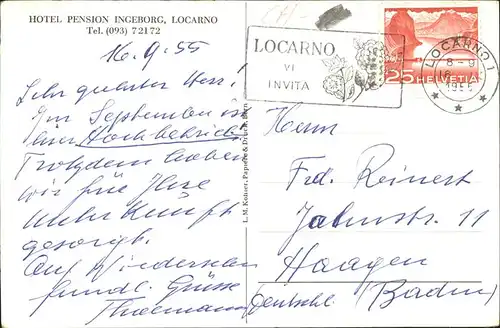 HOTEL PENSION INGEBORG, LOCARNO
Tel. (093) 7 21 72
16.9.55
Sehr geehrter Herr!
Im September ist
hier Hochbetrieb!
Trotzdem haben
wir für Ihre
gesorgt.
Auf Wiedersehen
freundl. Grüsse
LOCARNO
VI
INVITA
25 HELVETIA
LOCARNO 1
8-9
Herrn
Frd. Reinert
Jahnstr. 11
Haagen
Deutschl. (Baden)